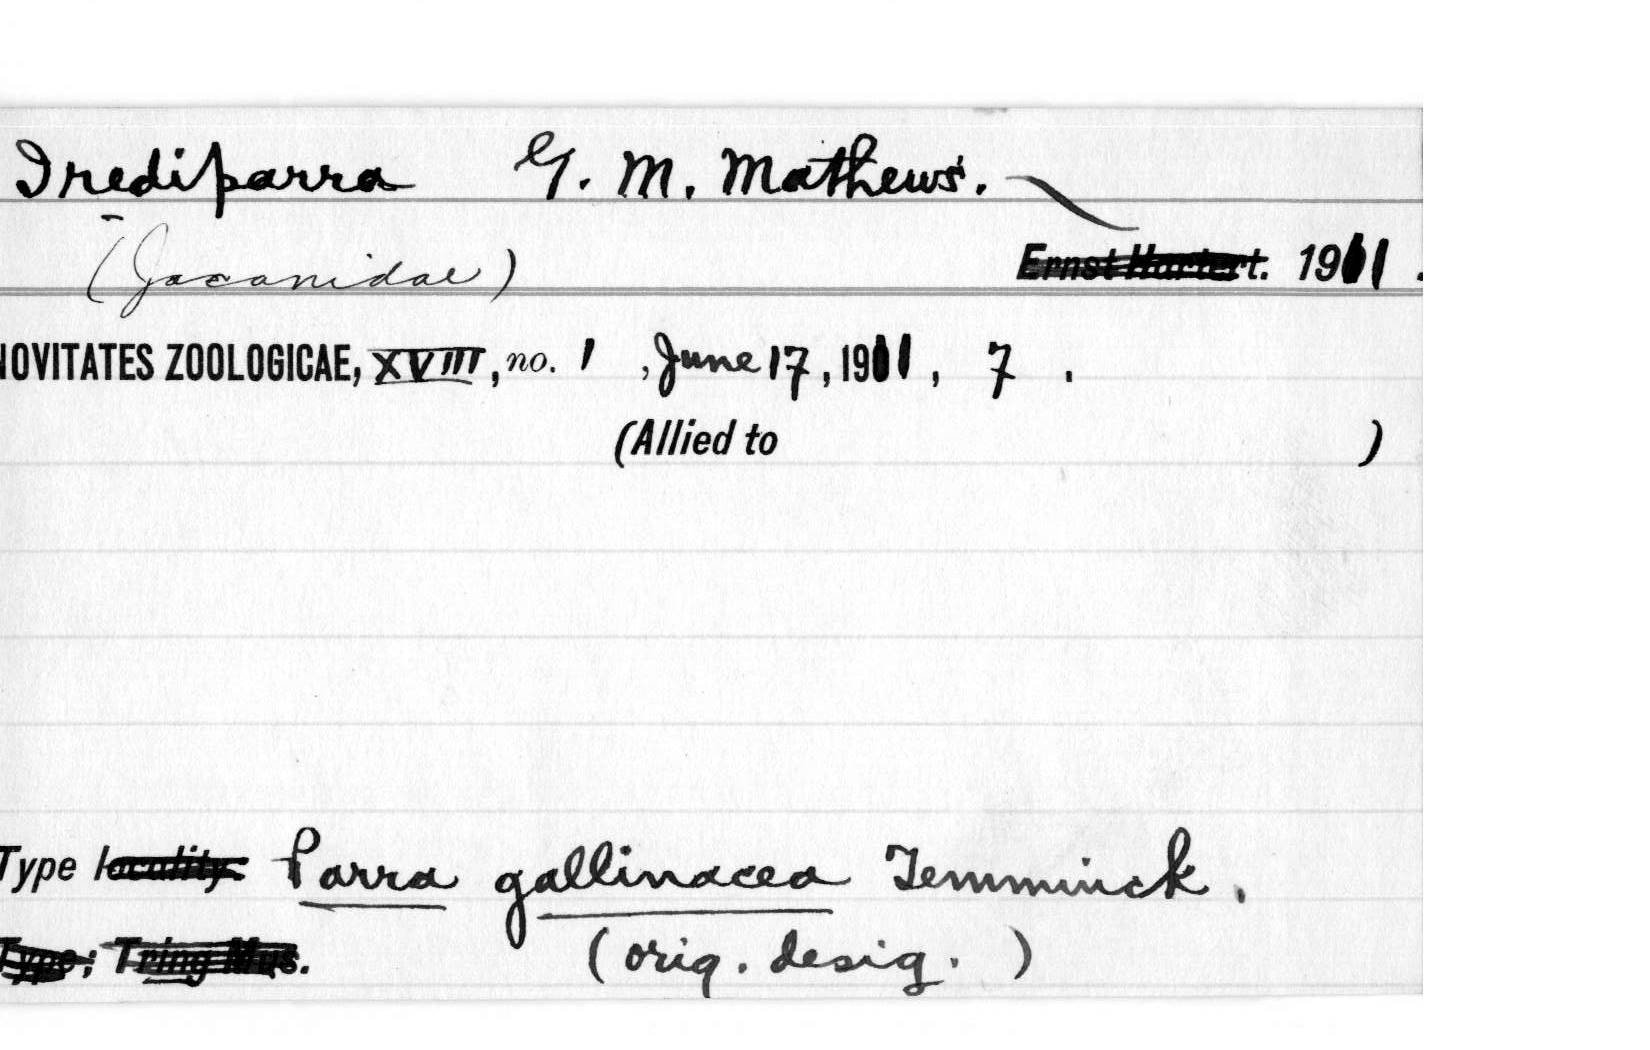 Irediparra G. M. Mathews.
(Jacanidae)
Ernst Hartert. 1911.
NOVITATES ZOOLOGICAE, XVIII, no. 1, June 17, 1911, 7.
(Allied to )
Type locality: Parra gallinacea Temminck.
Type; Tring Mus. (orig. desig.)